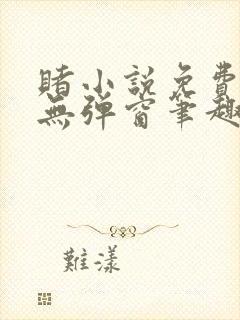 賭小説免費
無彈窗筆趣
難漾